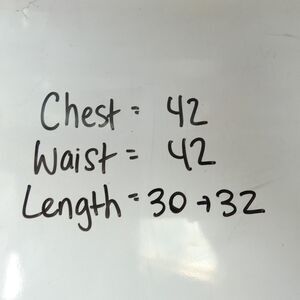 Chest = 42
Waist = 42
Length = 30 → 32